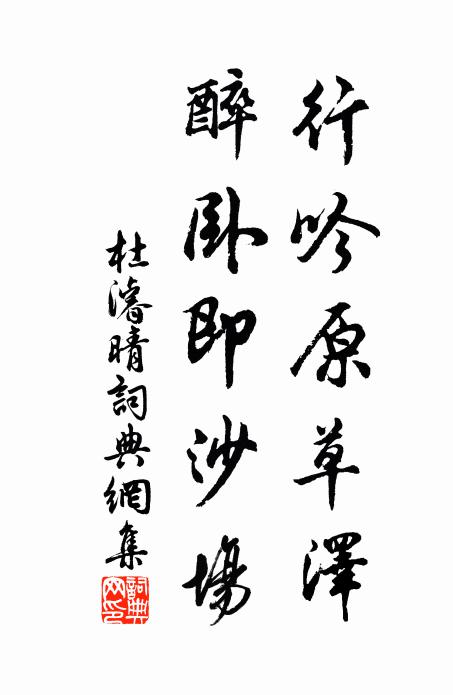 行吟原草澤
醉臥即沙場
杜濬晴詞典網集
詞典